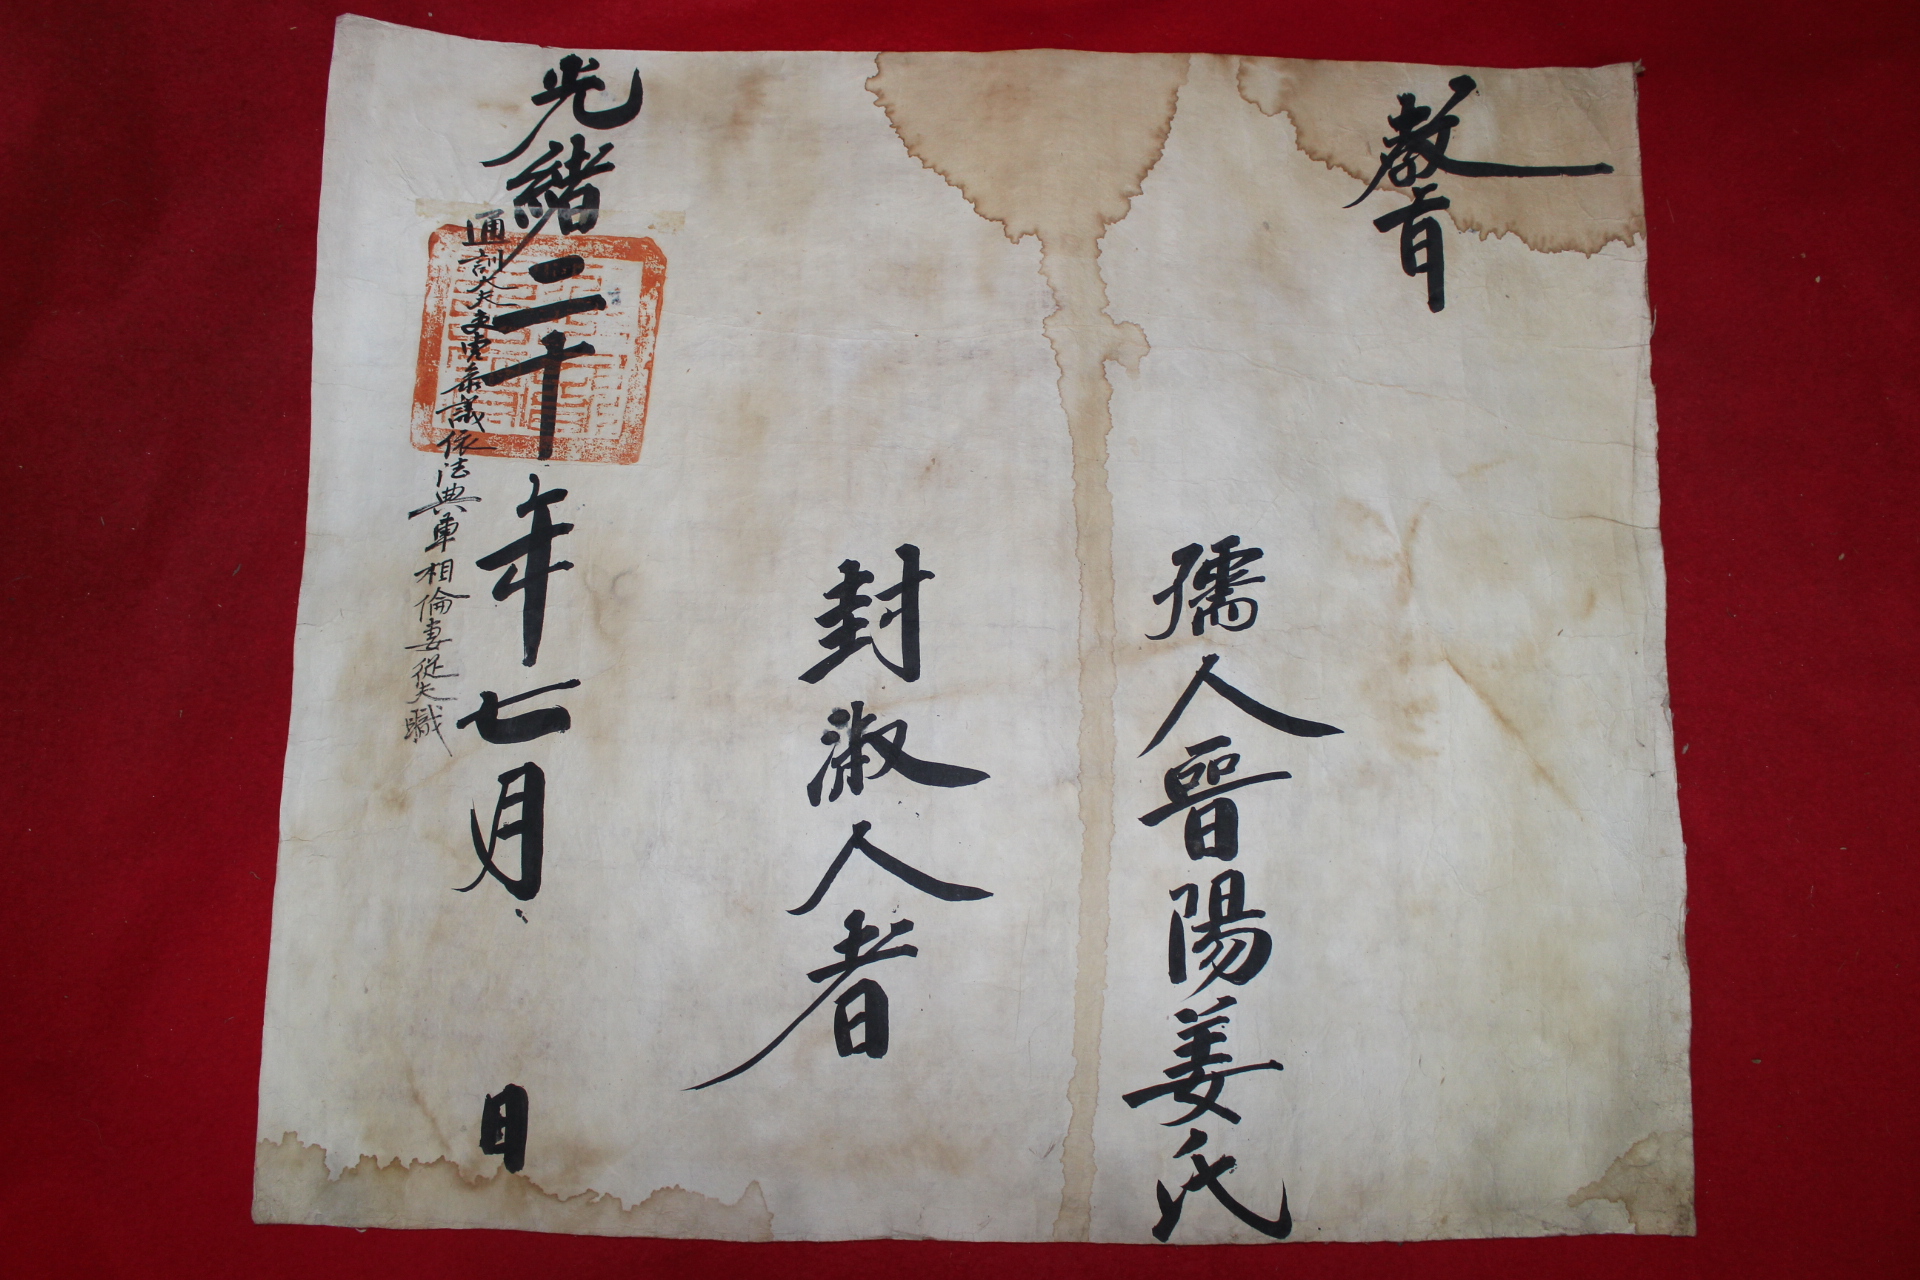 教旨
孺人晉陽姜氏
封淑人者
光緖二十年七月 日
通訓大夫吏曹叅議依法典單相倫妻從夫職